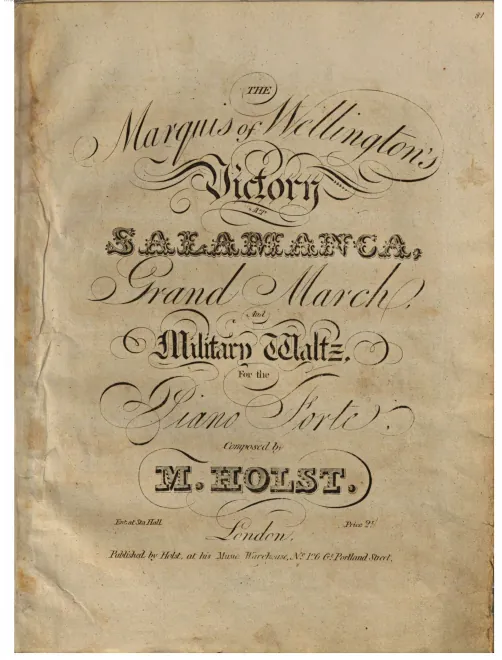 81
THE
Marquis of Wellington's
Victory
AT
SALAMANCA,
Grand March,
And
Military Waltz,
For the
Piano Forte.
Composed by
M. HOLST.
Ent. at Sta. Hall. Price 2/.
London.
Published by Holst, at his Music Warehouse, No. Gt. Portland Street.